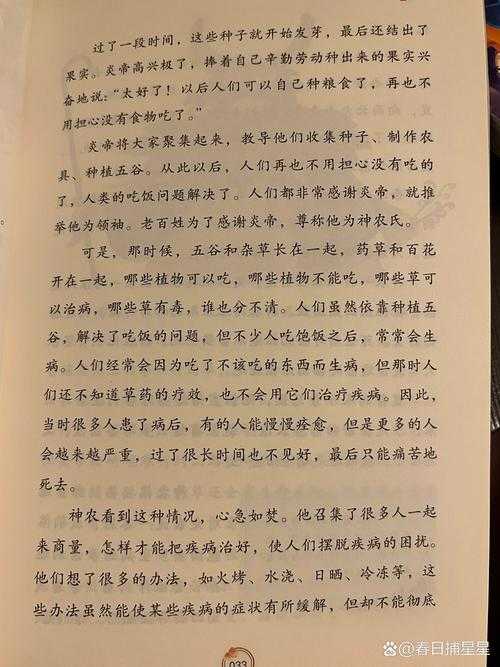 过了一段时间，这些种子就开始发芽，最后还结出了
果实。炎帝高兴极了，捧着自己辛勤劳动种出来的果实兴
奋地说：“太好了！以后人们可以自己种粮食了，再也不
用担心没有食物吃了。”
炎帝将大家聚集起来，教导他们收集种子、制作农
具、种植五谷。从此以后，人们再也不用担心没有吃的
了，人类的吃饭问题解决了。人们都非常感谢炎帝，就推
举他为领袖。老百姓为了感谢炎帝，尊称他为神农氏。
可是，那时候，五谷和杂草长在一起，药草和百花
开在一起，哪些植物可以吃，哪些植物不能吃，哪些草可
以治病，哪些草有毒，谁也分不清。人们虽然依靠种植五
谷，解决了吃饭的问题，但不少人吃饱饭之后，常常会生
病。人们经常会因为吃了不该吃的东西而生病，但那时人
们还不知道草药的疗效，也不会用它们治疗疾病。因此，
当时很多人患了病后，有的人能慢慢痊愈，但是更多的人
会越来越严重，过了很长时间也不见好，最后只能痛苦地
死去。
神农看到这种情况，心急如焚。他召集了很多人一起
来商量，怎样才能把疾病治好，使人们摆脱疾病的困扰。
他们想了很多的办法，如火烤、水浇、日晒、冷冻等，这
些办法虽然能使某些疾病的症状有所缓解，但却不能彻底
033
春日捕星星